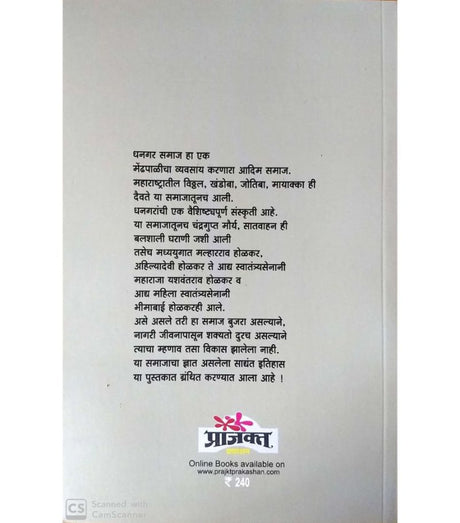 धनगर समाज हा एक
मेंढपाळीचा व्यवसाय करणारा आदिम समाज.
महाराष्ट्रातील विठ्ठल, खंडोबा, जोतिबा, मायाक्का ही
दैवते या समाजातूनच आली.
धनगरांची एक वैशिष्ट्यपूर्ण संस्कृती आहे.
या समाजातूनच चंद्रगुप्त मौर्य, सातवाहन ही
बलशाली घराणी जशी आली
तसेच मध्ययुगात मल्हारराव होळकर,
अहिल्यादेवी होळकर ते आद्य स्वातंत्र्यसेनानी
महाराजा यशवंतराव होळकर व
आद्य महिला स्वातंत्र्यसेनानी
भीमाबाई होळकरही आले.
असे असले तरी हा समाज बुजरा असल्याने,
नागरी जीवनापासून शक्यतो दुरच असल्याने
त्याचा म्हणाव तसा विकास झालेला नाही.
या समाजाचा ज्ञात असलेला साद्यंत इतिहास
या पुस्तकात ग्रंथित करण्यात आला आहे !
प्राजक्त
प्रकाशन
Online Books available on
www.prajktprakashan.com
₹ 240
CS Scanned with
CamScanner